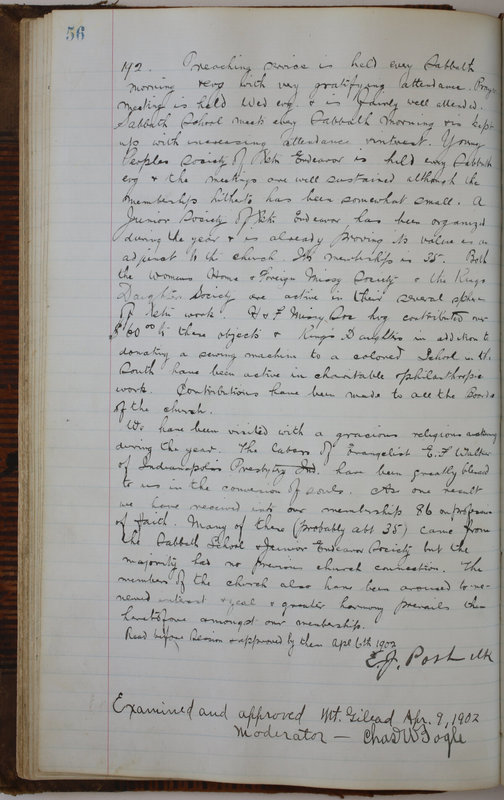 56
142. Preaching service is held every Sabbath
morning & evg with very gratifying attendance. Prayer
meeting is held Wed evg. & is fairly well attended.
Sabbath School meets every Sabbath morning & is kept
up with increasing attendance & interest. Young
Peoples Society of Xtn Endeavor is held every Sabbath
evg & the meetings are well sustained although the
membership hitherto has been somewhat small. A
Junior Society of Xtn Endeavor has been organized
during the year & is already proving its value as an
adjunct to the church. Its membership is 35. Both
the Womens Home & Foreign Missy Society & the Kings
Daughters Society are active in their several spheres
of Xtn work. H & F Missy Soc hvg contributed over
$100 00 to these objects & King's Daughters in addition to
donating a sewing machine to a colored School in the
South have been active in charitable & philanthropic
work. Contributions have been made to all the Boards
of the church.
We have been visited with a gracious religious awakening
during the year. The labors of Evangelist E. F. Walker
of Indianapolis Presbytery Ind. have been greatly blessed
to us in the conversion of souls. As one result
we have received into our membership 86 on profession
of faith. Many of these (probably abt 35) came from
the Sabbath School & Junior Endeavor Society but the
majority had no previous church connection. The
members of the church also have been aroused to re-
newed interest & zeal & greater harmony prevails than
heretofore amongst our membership.
Read before Session & approved by them Apl 6th 1902
E. J. Post clk
Examined and approved Mt. Gilead Apr. 9, 1902
Moderator — Chas W Fogle